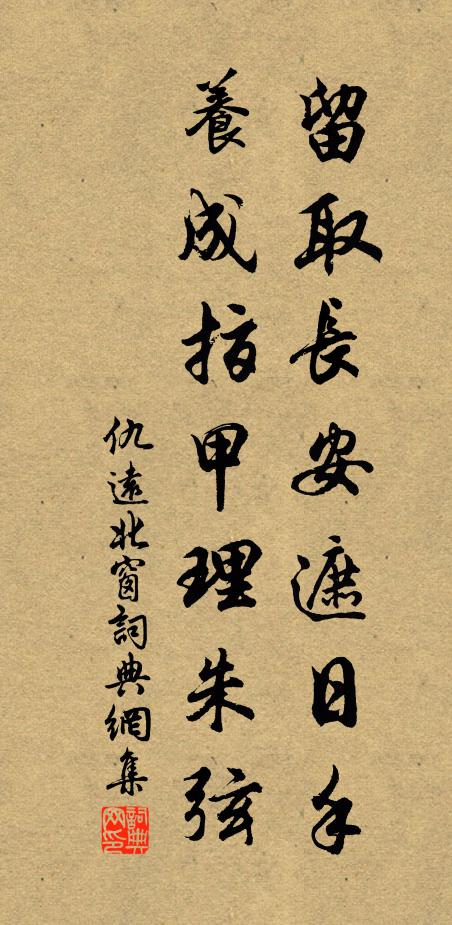 留取長安遮日手
養成指甲理朱弦
仇遠北窗詞典網集
詞典网印